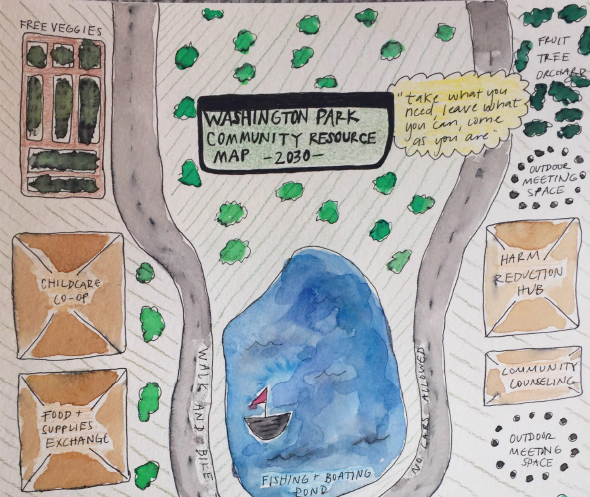 FREE VEGGIES
WASHINGTON PARK
COMMUNITY RESOURCE
MAP -2030-
"take what you
need, leave what
you can, come
as you are"
FRUIT
TREE
ORCHARD
OUTDOOR
MEETING
SPACE
CHILDCARE
CO-OP
HARM
REDUCTION
HUB
COMMUNITY
COUNSELING
FOOD +
SUPPLIES
EXCHANGE
WALK AND BIKE
NO CARS ALLOWED
OUTDOOR
MEETING
SPACE
FISHING + BOATING
POND